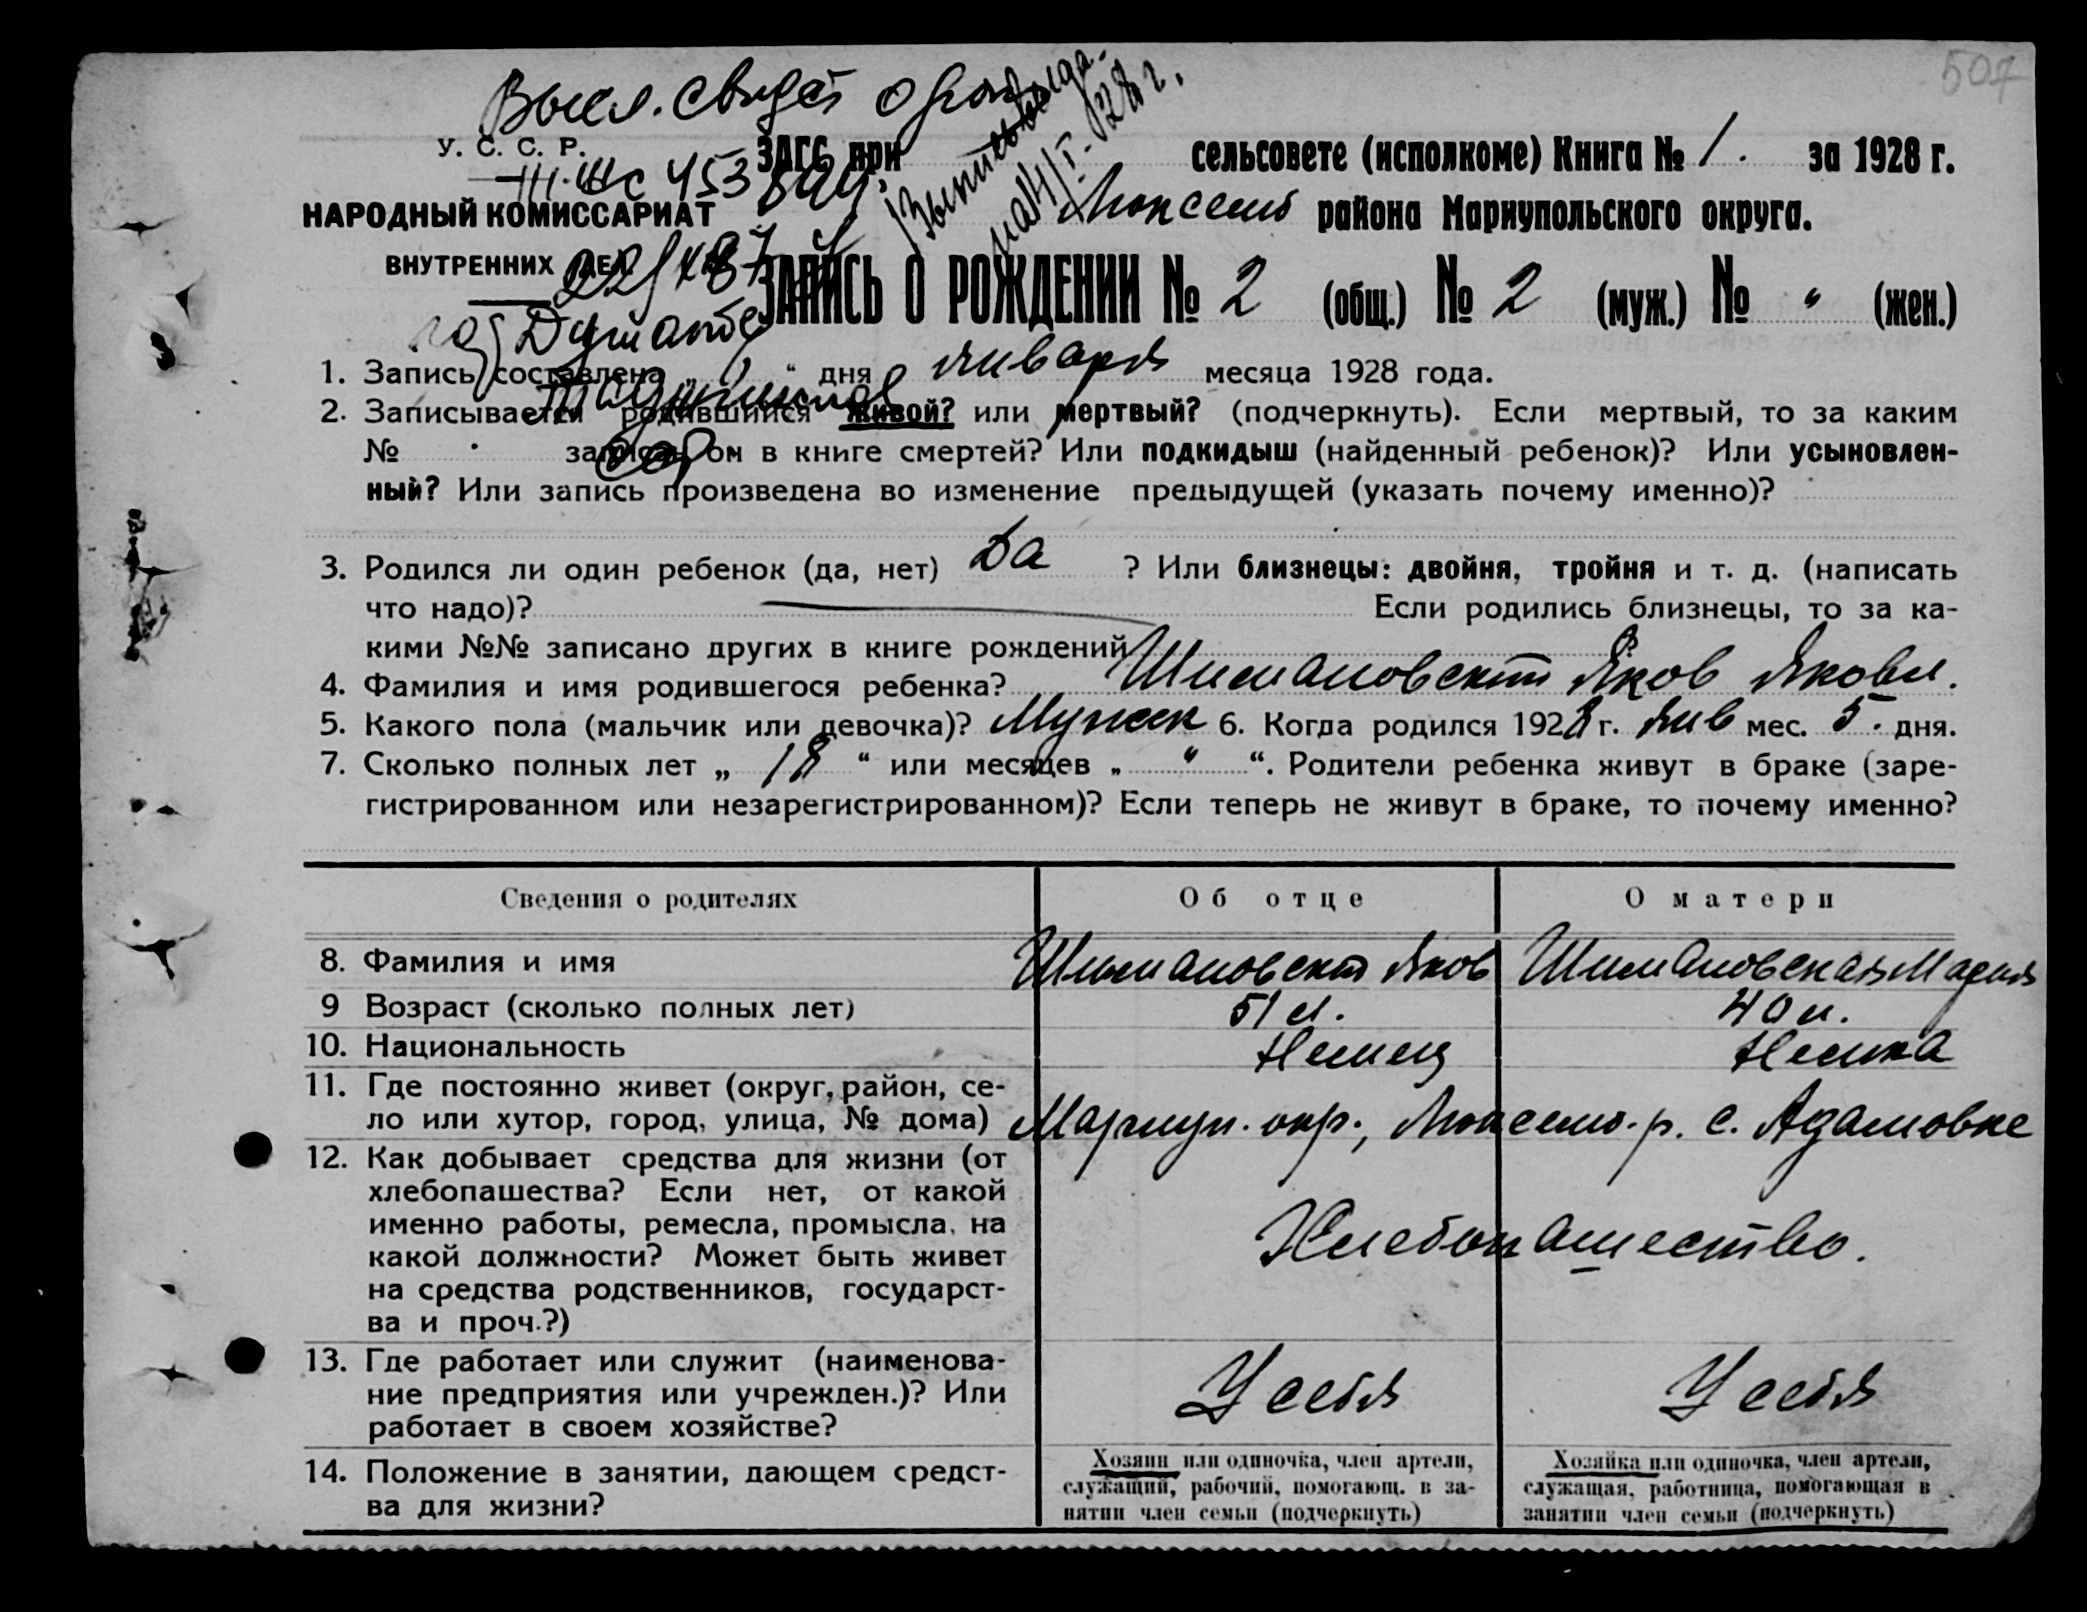 507
Высл. свидет о рожд
У. С. С. Р. ЗАГС при сельсовете (исполкоме) Книга № 1. за 1928 г.
НАРОДНЫЙ КОМИССАРИАТ Люксемб района Мариупольского округа.
ВНУТРЕННИХ ДЕЛ
ЗАПИСЬ О РОЖДЕНИИ № 2 (общ.) № 2 (муж.) № " (жен.)
Душанбе
1. Запись составлена „ “ дня января месяца 1928 года.
2. Записывается родившийся живой? или мертвый? (подчеркнуть). Если мертвый, то за каким
№ записан он в книге смертей? Или подкидыш (найденный ребенок)? Или усыновлен-
ный? Или запись произведена во изменение предыдущей (указать почему именно)?
3. Родился ли один ребенок (да, нет) Да ? Или близнецы: двойня, тройня и т. д. (написать
что надо)? Если родились близнецы, то за ка-
кими №№ записано других в книге рождений
4. Фамилия и имя родившегося ребенка? Шимановский Яков Яковл.
5. Какого пола (мальчик или девочка)? Мужск 6. Когда родился 1928 г. Янв мес. 5. дня.
7. Сколько полных лет „ 18 “ или месяцев „ " “. Родители ребенка живут в браке (заре-
гистрированном или незарегистрированном)? Если теперь не живут в браке, то почему именно?
Сведения о родителях Об отце О матери
8. Фамилия и имя Шимановский Яков Шимановская Мария
9 Возраст (сколько полных лет) 51 л. 40 л.
10. Национальность Немец Немка
11. Где постоянно живет (округ, район, се-
ло или хутор, город, улица, № дома) Мариуп. окр., Люксемб. р. с. Адамовке
12. Как добывает средства для жизни (от
хлебопашества? Если нет, от какой
именно работы, ремесла, промысла, на
какой должности? Может быть живет
на средства родственников, государст-
ва и проч.?)
Хлебопашество.
13. Где работает или служит (наименова-
ние предприятия или учрежден.)? Или
работает в своем хозяйстве?
У себя У себя
14. Положение в занятии, дающем средст-
ва для жизни?
Хозяин или одиночка, член артели,
служащий, рабочий, помогающ. в за-
нятии член семьи (подчеркнуть)
Хозяйка или одиночка, член артели,
служащая, работница, помогающая в
занятии член семьи (подчеркнуть)